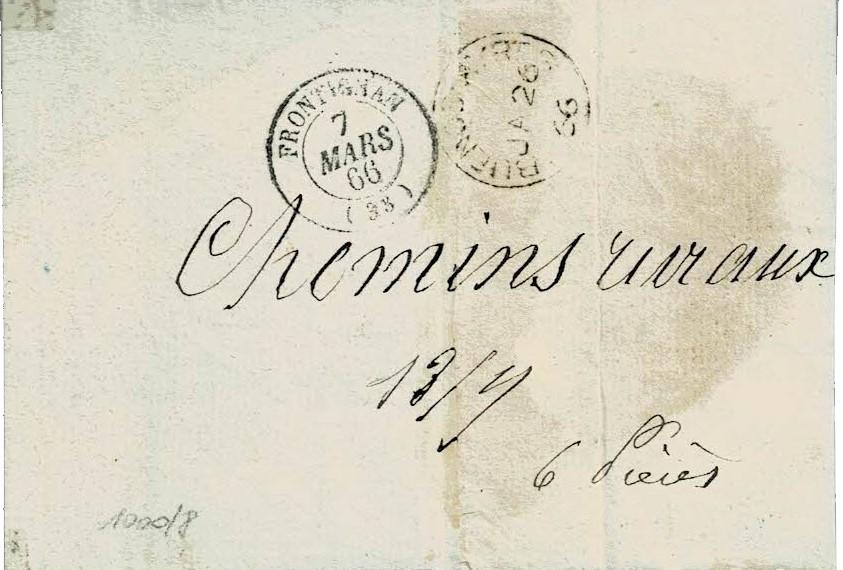 FRONTIGNAN
7
MARS
66
(33)
BUENOS AYRES
JA 26
66
Chemins ruraux
13/9
6 Pièces
1000/8